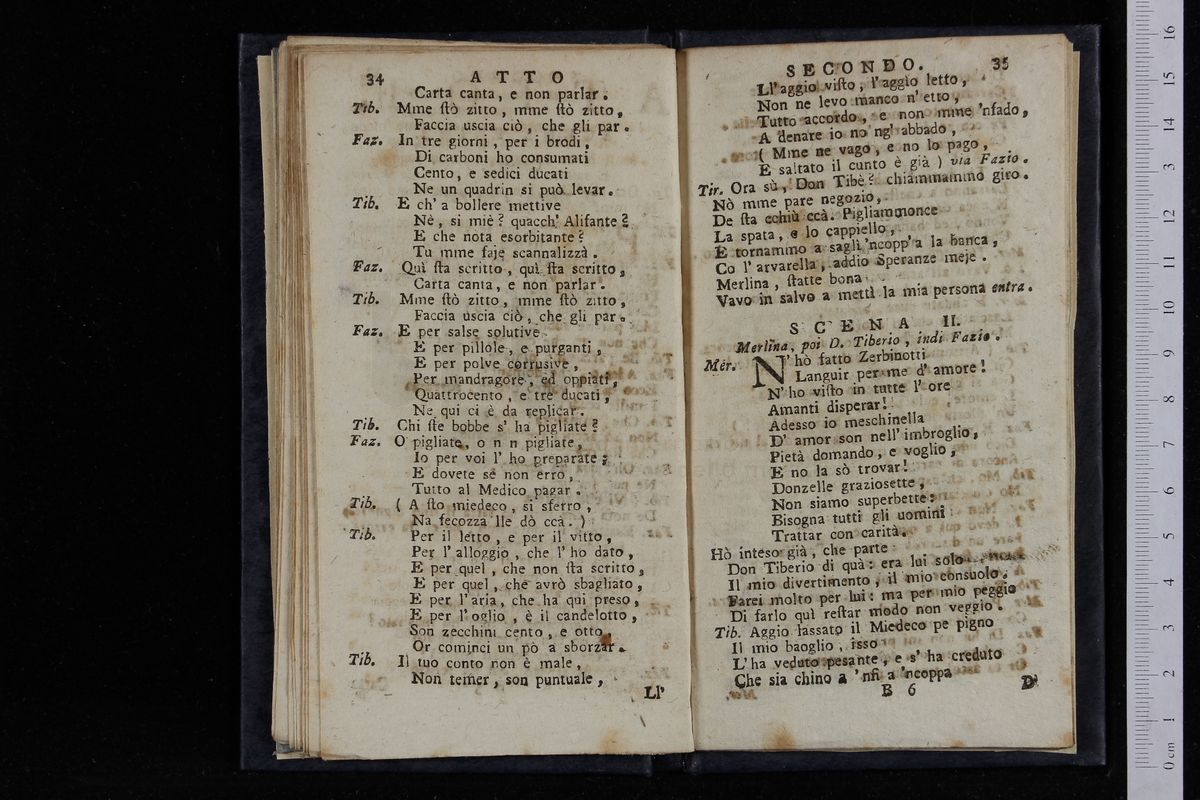 34 ATTO
Carta canta, e non parlar.
Tib. Mme ſtò zitto, mme ſtò zitto,
Faccia uscia ciò, che gli par.
Faz. In tre giorni, per i brodi,
Di carboni ho consumati
Cento, e sedici ducati
Ne un quadrin si può levar.
Tib. E ch' a bollere mettive
Nè, si miè? quacch' Alifante?
E che nota esorbitante?
Tu mme faje scannalizzà.
Faz. Quì ſta scritto, quì ſta scritto,
Carta canta, e non parlar.
Tib. Mme ſtò zitto, mme ſtò zitto,
Faccia uscia ciò, che gli par.
Faz. E per salse solutive
E per pillole, e purganti,
E per polve corrusive,
Per mandragore, ed oppiati,
Quattrocento, e tre ducati,
Ne qui ci è da replicar.
Tib. Chi ſte bobbe s' ha pigliate?
Faz. O pigliate, o n n pigliate,
Io per voi l' ho preparate;
E dovete se non erro,
Tutto al Medico pagar.
Tib. ( A ſto miedeco, si sferro,
Na fecozza lle dò ccà. )
Tib. Per il letto, e per il vitto,
Per l' alloggio, che l' ho dato,
E per quel, che non ſta scritto,
E per quel, che avrò sbagliato,
E per l'aria, che ha qui preso,
E per l'oglio, è il candelotto,
Son zecchini cento, e otto,
Or cominci un pò a sborzar.
Tib. Il tuo conto non è male,
Non temer, son puntuale,
Ll'
SECONDO. 35
Ll'aggio viſto, l'aggio letto,
Non ne levo manco n' etto,
Tutto accordo, e non mme 'nfado,
A denare io no ngl' abbado,
( Mme ne vago, e no lo pago,
E saltato il cunto è già ) via Fazio.
Tir. Ora sù, Don Tibè? chiammammo giro.
Nò mme pare negozio,
De ſta cchiù ccà. Pigliammonce
La spata, e lo cappiello,
E tornammo a saglì 'ncopp'a la banca,
Co l' arvarella, addio Speranze meje.
Merlina, ſtatte bona
Vavo in salvo a mettì la mia persona entra.
SCENA II.
Merlina, poi D. Tiberio, indi Fazio.
Mer. N' hò fatto Zerbinotti
Languir per me d' amore!
N' ho viſto in tutte l' ore
Amanti disperar!
Adesso io meschinella
D' amor son nell' imbroglio,
Pietà domando, e voglio,
E no la sò trovar!
Donzelle graziosette,
Non siamo superbette:
Bisogna tutti gli uomini
Trattar con carità.
Hò inteso già, che parte
Don Tiberio di quà: era lui solo
Il mio divertimento, il mio consuolo.
Farei molto per lui: ma per mio peggio
Di farlo quì reſtar modo non veggio.
Tib. Aggio lassato il Miedeco pe pigno
Il mio baoglio, isso
L'ha veduto pesante, e s' ha creduto
Che sia chino a 'nfi a 'ncoppa
B 6 D'